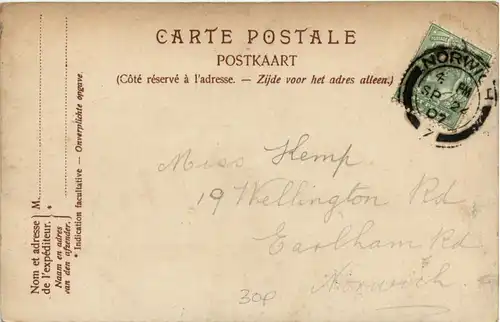 CARTE POSTALE
POSTKAART
(Côté réservé à l'adresse. — Zijde voor het adres alleen.)
Nom et adresse
de l'expéditeur.
Naam en adres
van den afzender.
* M.
* Indication facultative — Onverplichte opgave.
NORWICH
4 PM
SP 24
07
7
Miss Kemp.
19 Wellington Rd
Earlham Rd
Norwich.
30p